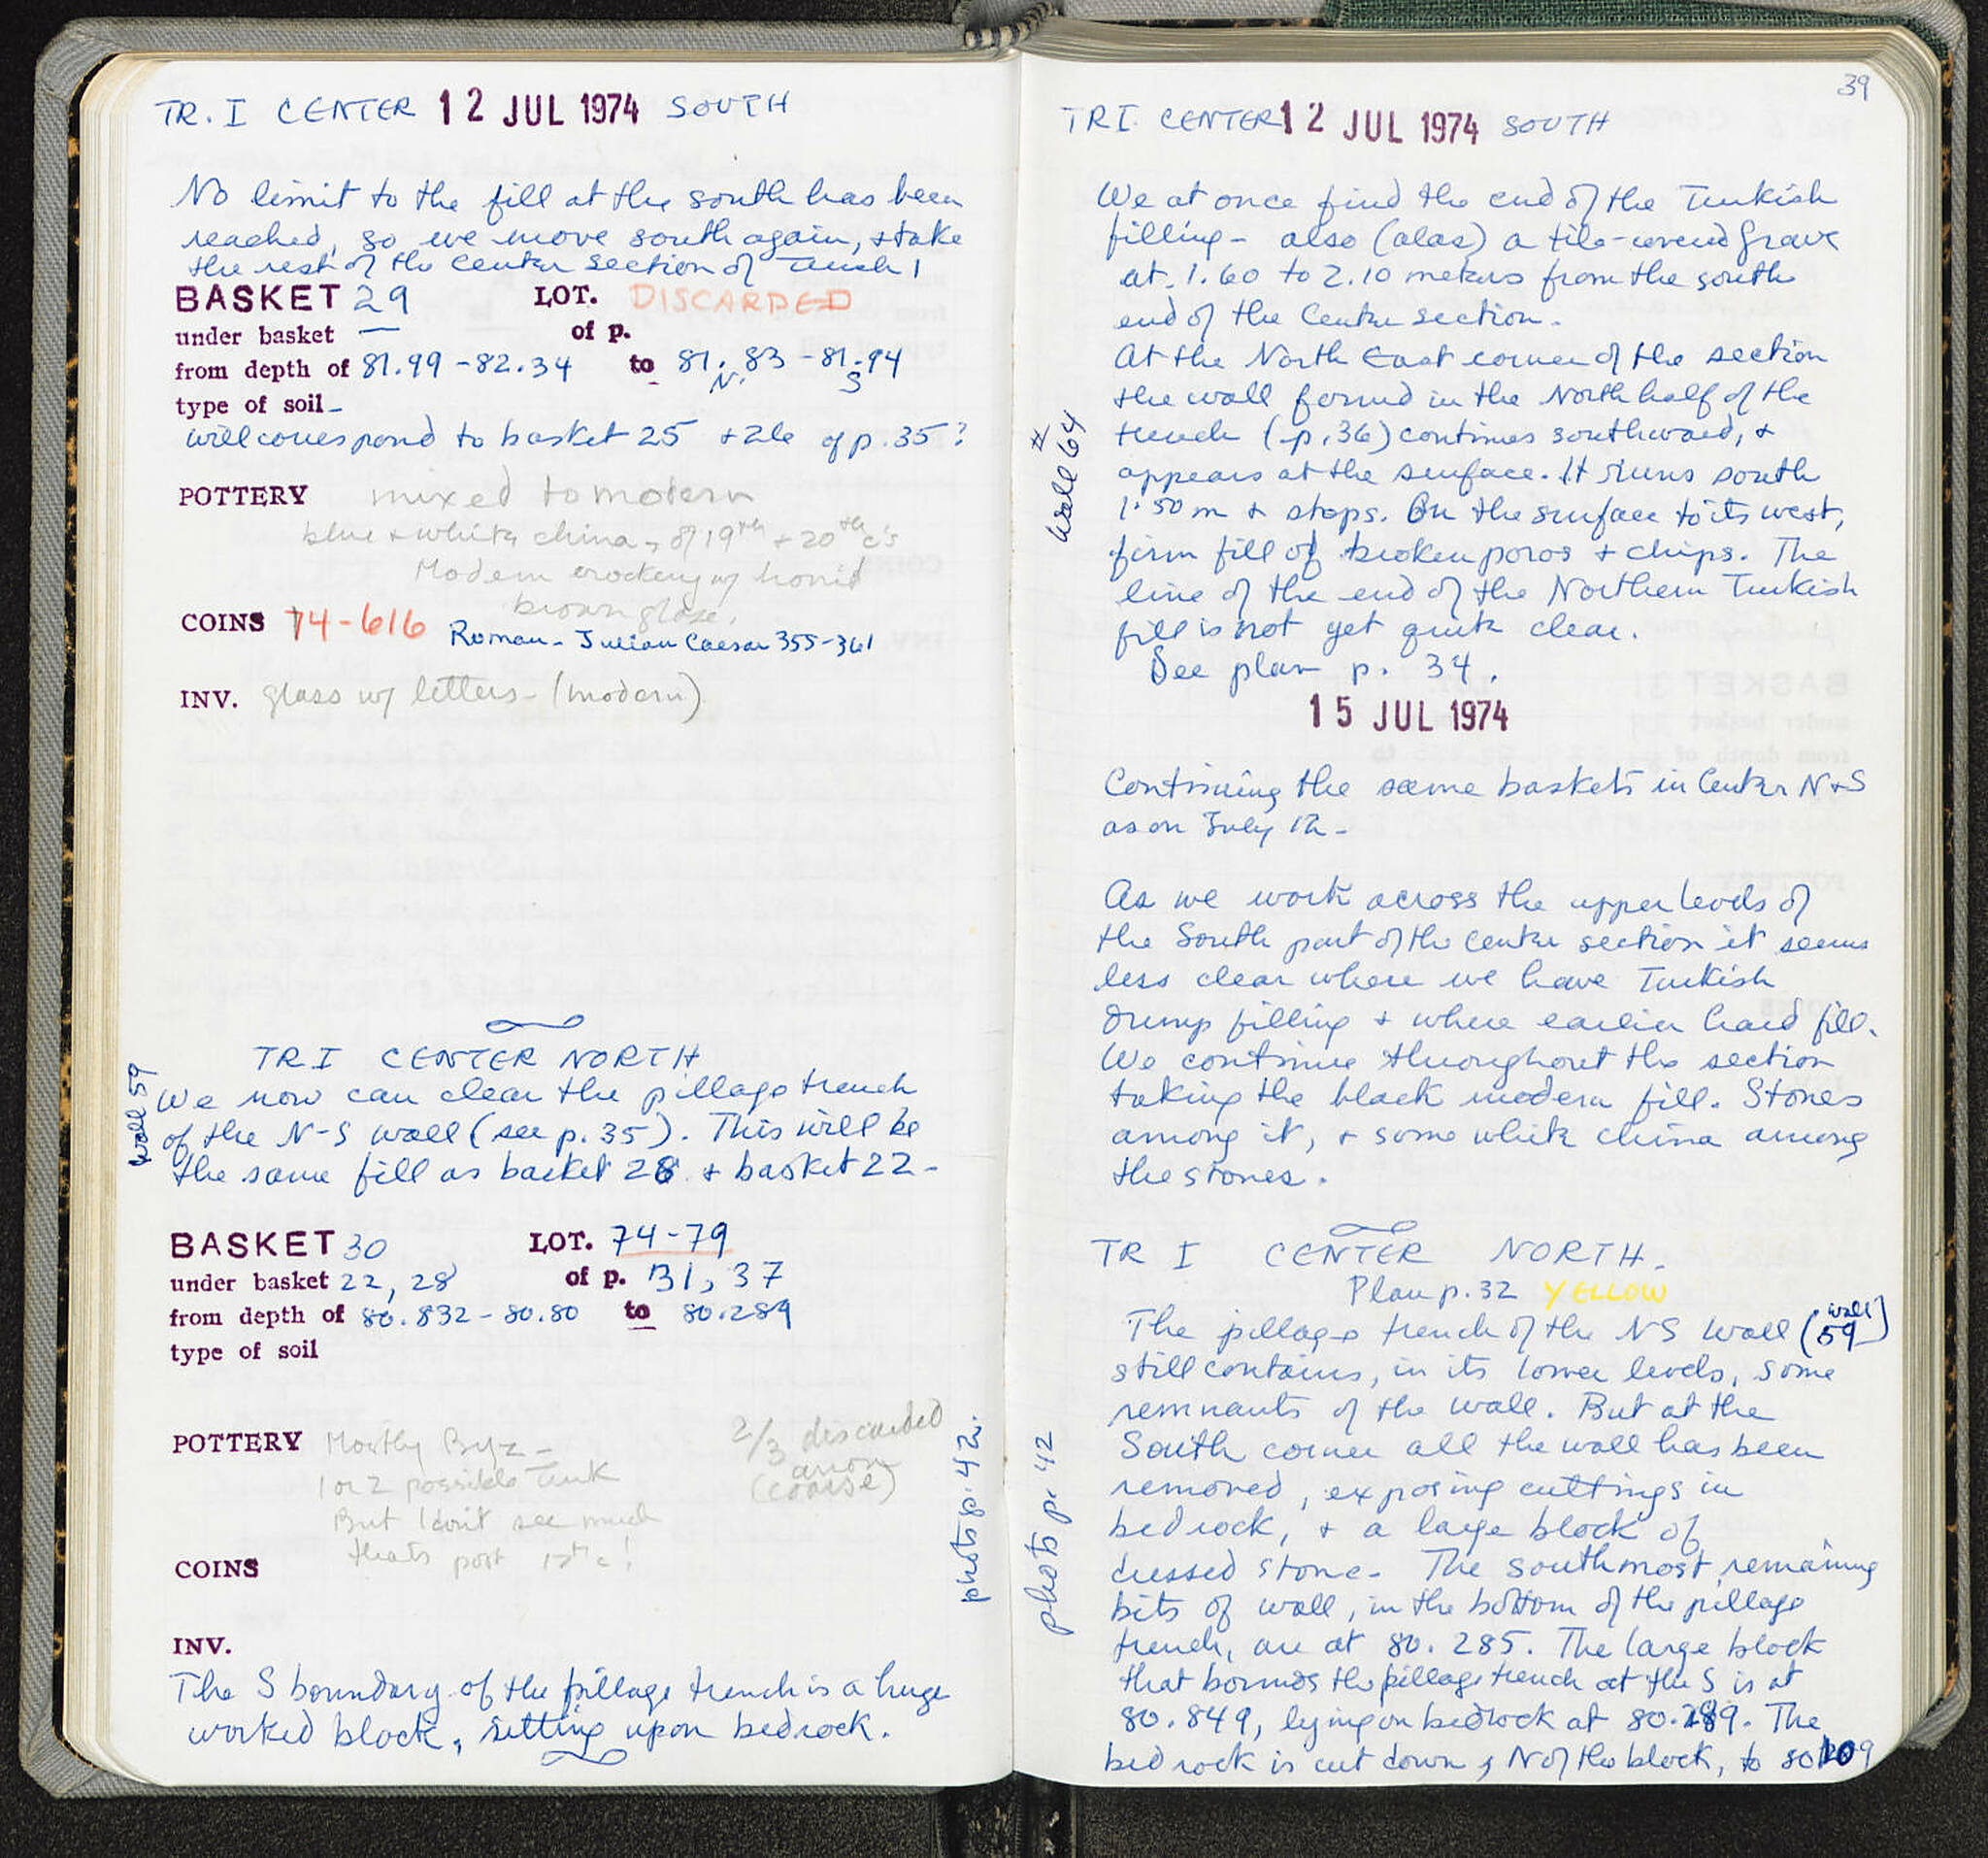 TR. I CENTER 12 JUL 1974 SOUTH
No limit to the fill at the south has been
reached, so we move south again, + take
the rest of the center section of Trench 1
BASKET 29 LOT. DISCARDED
under basket — of p.
from depth of 81.99 - 82.34 to 81.83 - 81.94
N. S
type of soil -
will correspond to basket 25 + 26 of p. 35?
POTTERY mixed to modern
blue + white china, of 19th + 20th c's
Modern crockery w/ horrid
brown glaze.
COINS 74-616 Roman - Julian Caesar 355-361
INV. glass w/ letters - (modern)
TR I CENTER NORTH
wall 59
We now can clear the pillage trench
of the N-S wall (see p. 35). This will be
the same fill as basket 28 + basket 22 -
BASKET 30 LOT. 74-79
under basket 22, 28 of p. 31, 37
from depth of 80.832 - 80.80 to 80.289
type of soil
POTTERY Mostly Byz - 2/3 discarded
1 or 2 possible Turk (coarse)
But I don't see much
thats post 12th c!
COINS
INV.
photo p. 42.
The S boundary of the pillage trench is a huge
worked block, sitting upon bedrock.
39
TR I. CENTER 12 JUL 1974 SOUTH
We at once find the end of the Turkish
filling - also (alas) a tile-covered grave
at 1.60 to 2.10 meters from the south
end of the Center section.
At the North East corner of the section
the wall found in the North half of the
trench (p. 36) continues southward, +
appears at the surface. It runs south
1.50 m + stops. On the surface to its west,
firm fill of broken poros + chips. The
line of the end of the Northern Turkish
fill is not yet quite clear.
See plan p. 34.
# wall 64
15 JUL 1974
Continuing the same baskets in Center N+S
as on July 12 -
As we work across the upper levels of
the South part of the center section it seems
less clear where we have Turkish
dump filling + where earlier hard fill.
We continue throughout the section
taking the black modern fill. Stones
among it, + some white china among
the stones.
TR I CENTER NORTH.
Plan p. 32 YELLOW
The pillage trench of the NS wall (wall 59)
still contains, in its lower levels, some
remnants of the wall. But at the
South corner all the wall has been
removed, exposing cuttings in
bedrock, + a large block of
dressed stone. The southmost remaining
bits of wall, in the bottom of the pillage
trench, are at 80.285. The large block
that bounds the pillage trench at the S is at
80.849, lying on bedrock at 80.289. The
bedrock is cut down, N of the block, to
photo p. 42